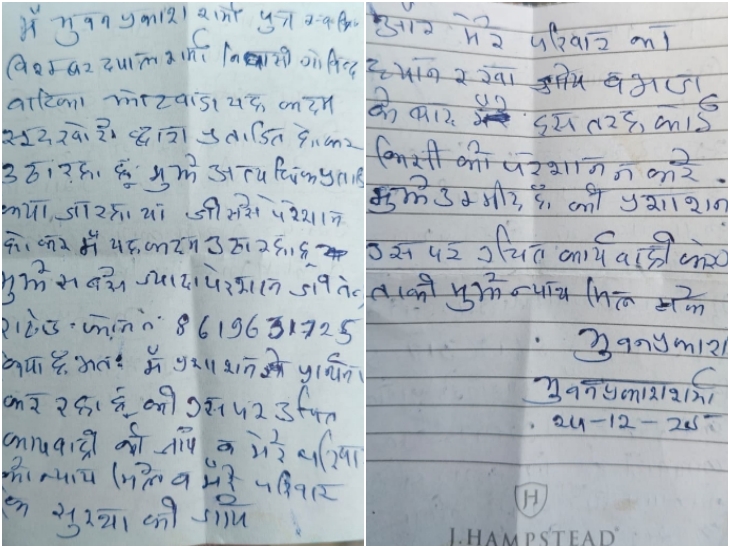 मैं भुवनप्रकाश शर्मा पुत्र स्व. श्री
विशम्बर दयाल शर्मा निवासी गोविन्द
वाटिका यह कदम
सूदखोरो द्वारा प्रताडित होकर
उठा रहा हूं मुझे अत्यधिक प्रता
किया जा रहा था जीससे परेशान
हो कर मैं यह कदम उठा रहा हूं
मुझे सबसे ज्यादा परेशान जीतेन्द्र
राठौड 8619631725
किया है अतः मैं प्रशाशन से प्रार्थना
कर रहा हूं की उस पर उचित
कार्यवाही की जाये व मेरे परिवा
को न्याय मिले व मेरे परिवार
के सुरक्षा की जाये
और मेरे परिवार का
ध्यान रखा जाये व
के बाद इस तरह कोई
किसी को परेशान न करे
मुझे उम्मीद है की प्रशाशन
उस पर उचित कार्यवाही करेगा
ताकी मुझे न्याय मिल सके
भुवनप्रकाश
भुवनप्रकाश शर्मा
24-12-25
H
J.HAMPSTEAD